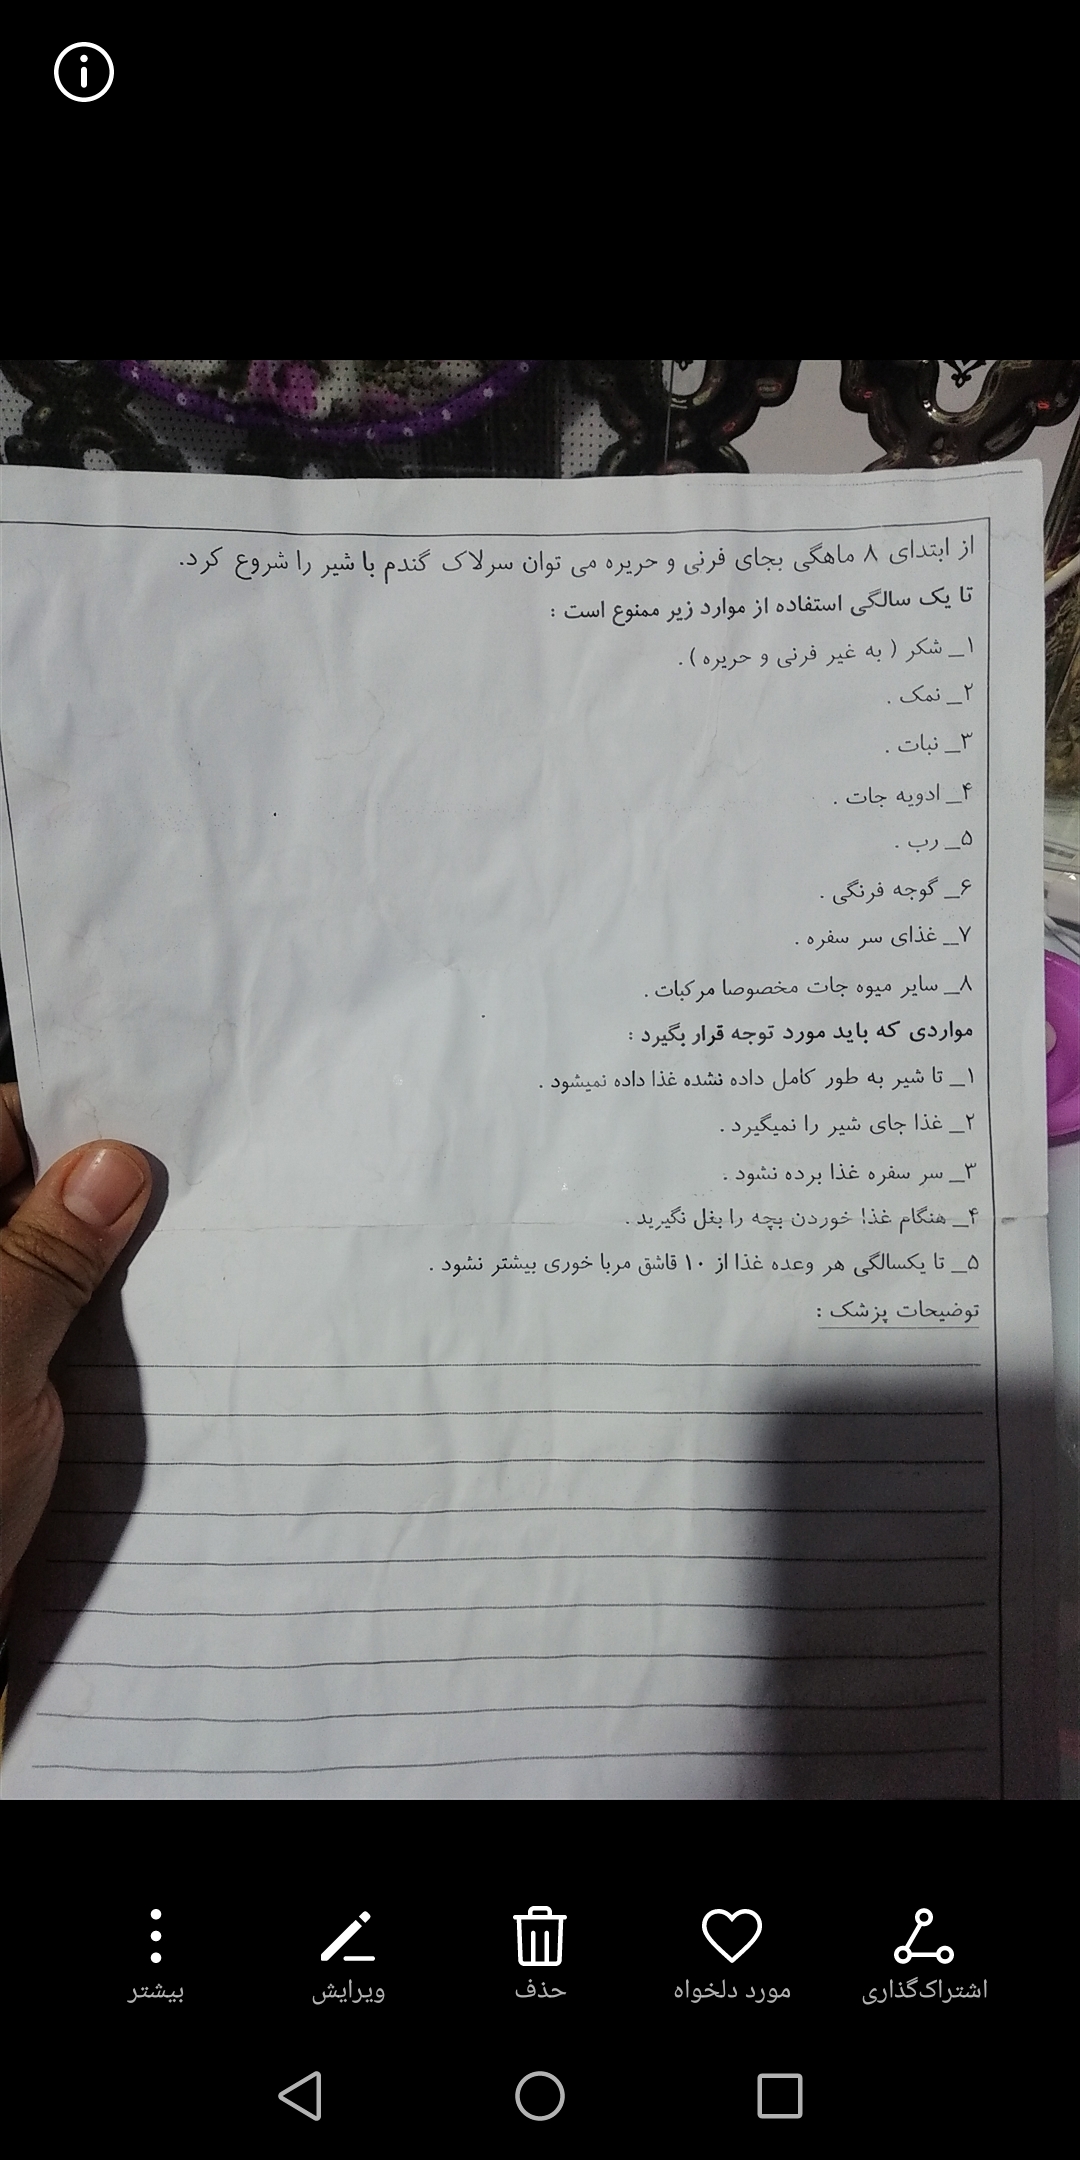 از ابتدای ۸ ماهگی بجای فرنی و حریره می توان سرلاک گندم با شیر را شروع کرد.
تا یک سالگی استفاده از موارد زیر ممنوع است :
۱_ شکر ( به غیر فرنی و حریره ) .
۲_ نمک .
۳_ نبات .
۴_ ادویه جات .
۵_ رب .
۶_ گوجه فرنگی .
۷_ غذای سر سفره .
۸_ سایر میوه جات مخصوصا مرکبات .
مواردی که باید مورد توجه قرار بگیرد :
۱_ تا شیر به طور کامل داده نشده غذا داده نمیشود .
۲_ غذا جای شیر را نمیگیرد .
۳_ سر سفره غذا برده نشود .
۴_ هنگام غذا خوردن بچه را بغل نگیرید .
۵_ تا یکسالگی هر وعده غذا از ۱۰ قاشق مربا خوری بیشتر نشود .
توضیحات پزشک :
اشتراک‌گذاری
مورد دلخواه
حذف
ویرایش
بیشتر